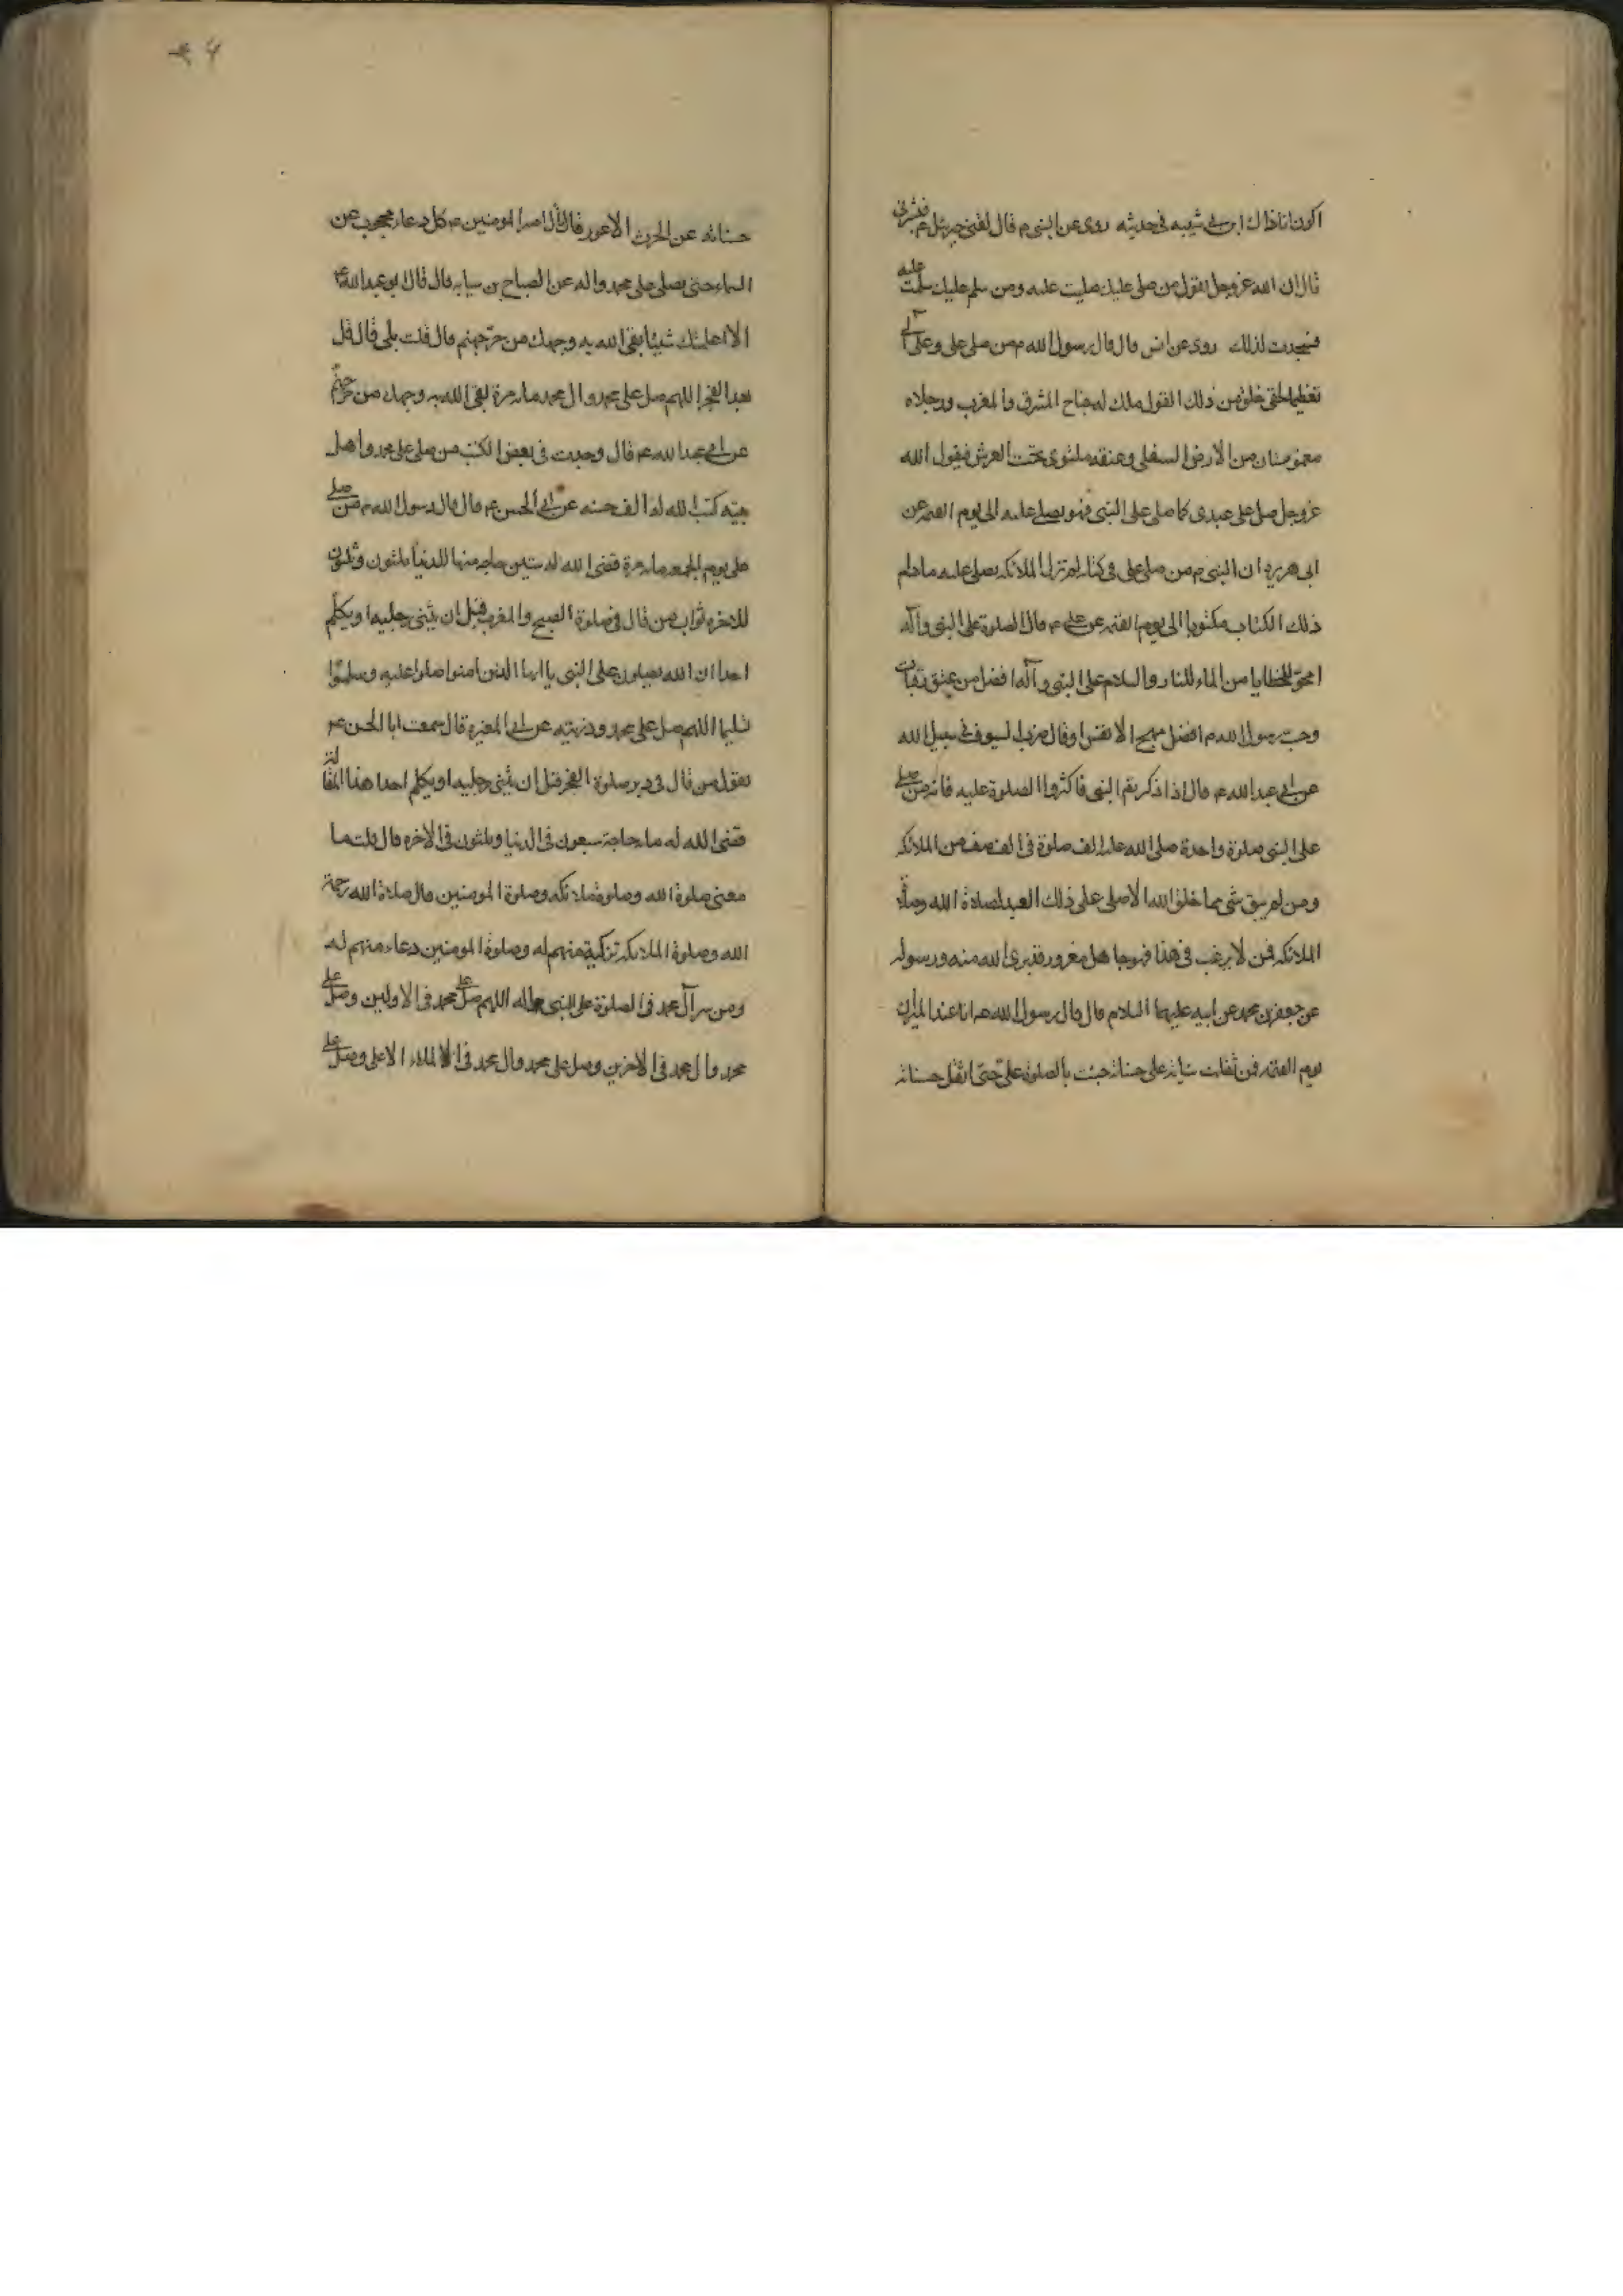 اكون انا ذاك ابن ابي شيبه في حديثه روى عن النبي م قال لقيني جبرئيل ع فبشرني
قال ان الله عز وجل يقول من صلى عليك صليت عليه ومن سلم عليك سلمت عليه
فسجدت لذلك روى عن انس قال قال رسول الله م من صلى علي وعلى آلي
تعظيما لحقي خلق من ذلك القول ملك له جناح المشرق والمغرب ورجلاه
معموستان من الارض السفلى وعنقه ملتوى تحت العرش فيقول الله
عز وجل صل على عبدى كما صلى على النبى فهو يصلى عليه الى يوم القيمه عن
ابى هريره ان النبي م من صلى على في كتاب لم تزل الملائكه يصلى عليه مادام
ذلك الكتاب مكتوبا الى يوم القيمه عن على ع قال الصلوة على النبى وآله
امحق للخطايا من الماء للنار والسلام على النبي وآله افضل من عتق رقاب
وحب رسول الله م افضل مهج الانفس او قال ضرب السيوف في سبيل الله
عن ابي عبد الله ع قال اذا ذكرتم النبى فاكثروا الصلوة عليه فانه من صلى
على النبي صلوة واحدة صلى الله عليه الف صلوة في الف صف من الملائكه
ومن لم يبق شى مما خلق الله الا صلى على ذلك العبد لصلاة الله وصلاة
الملائكه فمن لا يرغب في هذا فهو جاهل مغرور قد برئ الله منه ورسوله
عن جعفر بن محمد عن ابيه عليهما السلام قال قال رسول الله ص انا عند الميزان
يوم القيمه فمن ثقلت سياته على حسناته جئت بالصلوة على حتى اثقل حسناته
حسناته عن الحرث الاعور قال قال امير المومنين ع كل دعاء محجوب عن
السماء حتى يصلى على محمد واله عن الصباح بن سيابه قال قال ابو عبد الله ع
الا اعلمك شيئا يقى الله به وجهك من حر جهنم قال قلت بلى قال قل
بعد الفجر اللهم صل على محمد وال محمد مايه مرة يقى الله به وجهك من حر جهنم
عن ابي عبد الله ع قال وجدت في بعض الكتب من صلى على محمد واهل
بيته كتب الله له الف حسنه عن ابي الحسن ع قال قال رسول الله م من صلى
على يوم الجمعه مايه مرة قضى الله له ستين حاجه منها للدنيا ثلثون وثلثون
للاخره ثواب من قال في صلوة الصبح والمغرب قبل ان يثنى رجليه او يكلم
احدا ان الله يصلون على النبى يا ايها الذين امنوا صلوا عليه وسلموا
تسليما اللهم صل على محمد وذريته عن ابي المغيره قال سمعت ابا الحسن ع
يقول من قال في دبر صلوة الفجر قبل ان يثنى رجليه او يكلم احدا هذا المقالة
قضى الله له مايه حاجة سبعون في الدنيا وثلثون في الاخره قال قلت ما
معنى صلوة الله وصلوة ملائكه وصلوة المومنين قال صلاة الله رحمة
الله وصلوة الملائكه تزكية منهم له وصلوة المومنين دعاء منهم له
ومن سر آل محمد في الصلوة على النبى واله اللهم صل على محمد في الاولين وصل على
محمد وال محمد في الاخرين وصل على محمد وال محمد في الملاء الاعلى وصل على